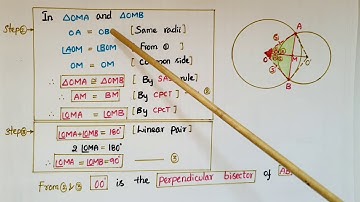 In △OMA and △OMB
Step②
OA = OB [Same radii]
∠AOM = ∠BOM [From ①]
OM = OM [Common side]
∴ △OMA ≅ △OMB [By SAS rule]
∴ AM = BM [By CPCT] ②
∴ ∠OMA = ∠OMB [By CPCT]
Step③
∠OMA+∠OMB = 180° [Linear pair]
2∠OMA = 180°
∴ ∠OMA = ∠OMB = 90° ③
From ② & ③ OO' is the perpendicular bisector of AB
A
O
M
O'
B